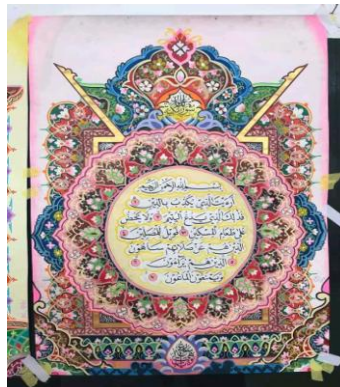 بسم الله الرحمن الرحيم
أرءيت الذي يكذب بالدين
فذلك الذي يدع اليتيم ولا يحض
على طعام المسكين فويل للمصلين
الذين هم عن صلاتهم ساهون
الذين هم يراءون
ويمنعون الماعون